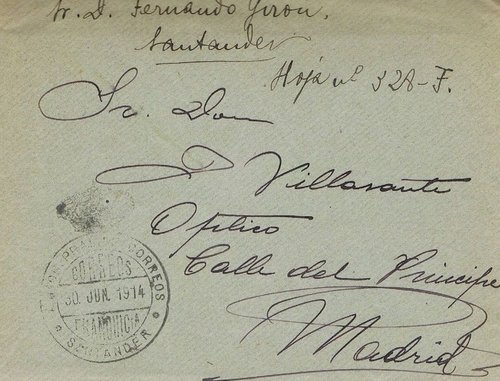 Sr. D. Fernando Giron.
Santander
Hoja nº 328-F.
Sr. Don
F Villasante
Optico
Calle del Principe
Madrid
CORREOS
CORREOS
30 JUN. 1914
FRANQUICIA
SANTANDER